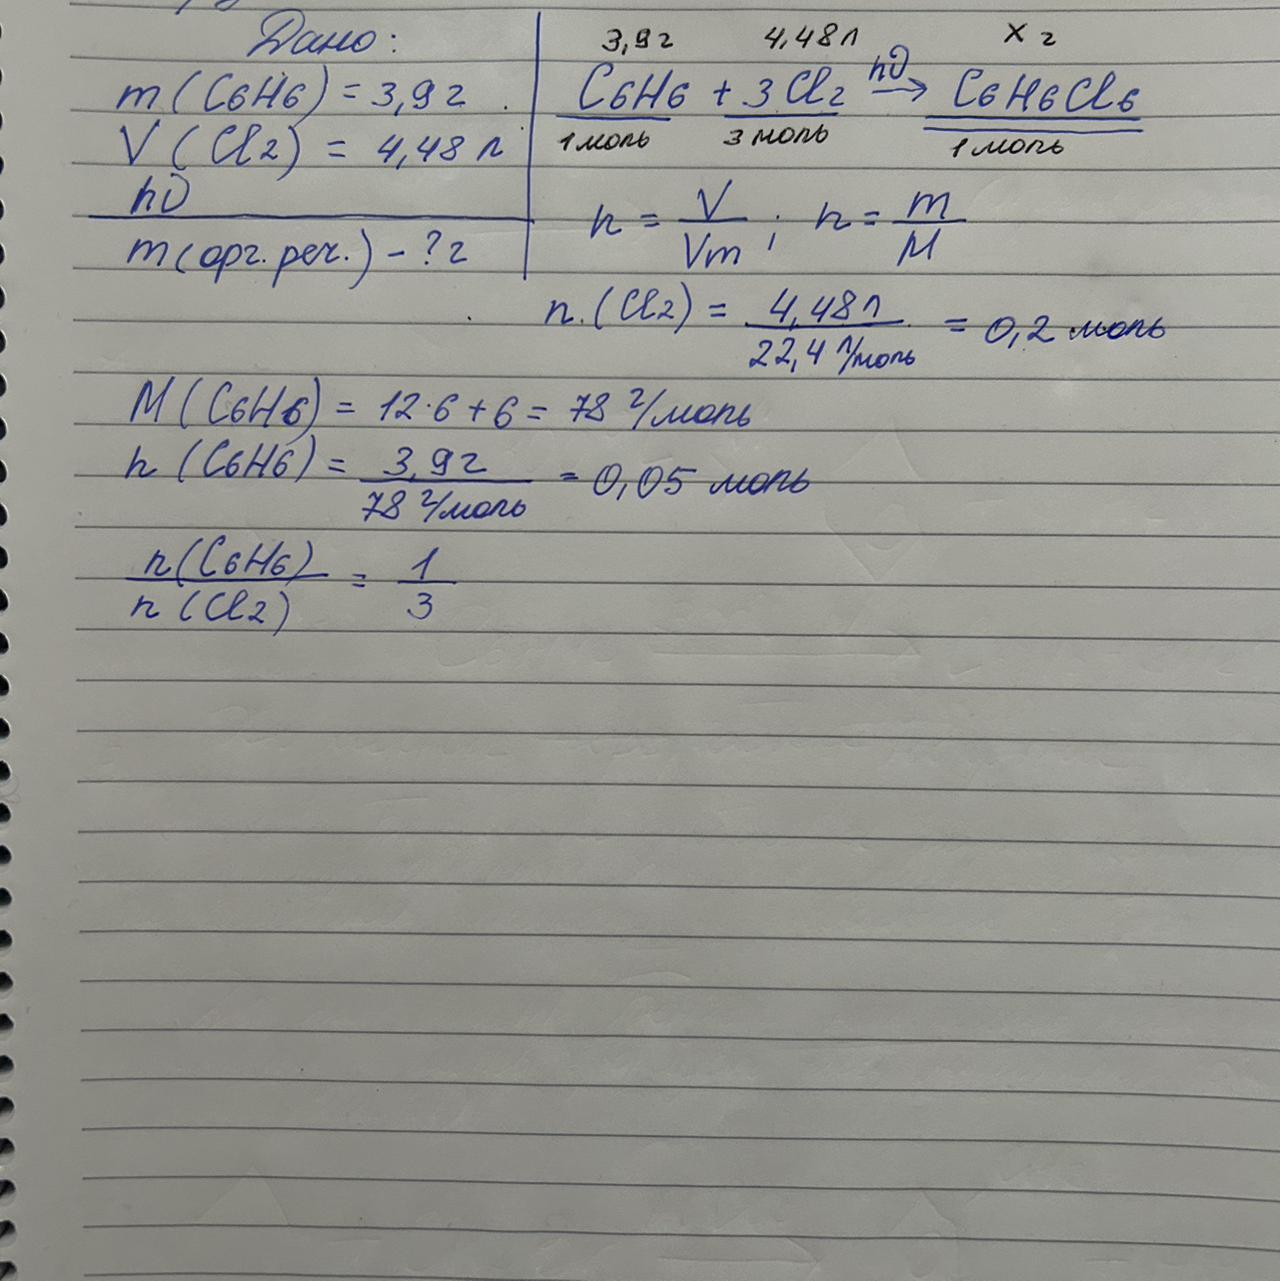 Дано:
m(C6H6) = 3,9 г
V(Cl2) = 4,48 л
hν
m(орг. реч.) - ? г
3,9 г 4,48 л x г
C6H6 + 3Cl2 hν → C6H6Cl6
1 моль 3 моль 1 моль
n = V/Vm ; n = m/M
n.(Cl2) = 4,48 л / 22,4 л/моль = 0,2 моль
M(C6H6) = 12·6 + 6 = 78 г/моль
n(C6H6) = 3,9 г / 78 г/моль = 0,05 моль
n(C6H6) / n(Cl2) = 1/3